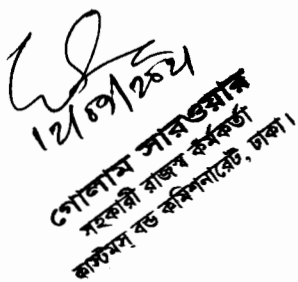 গোলাম সারওয়ার
সহকারী রাজস্ব কর্মকর্তা
কাস্টমস্ বন্ড কমিশনারেট, ঢাকা।